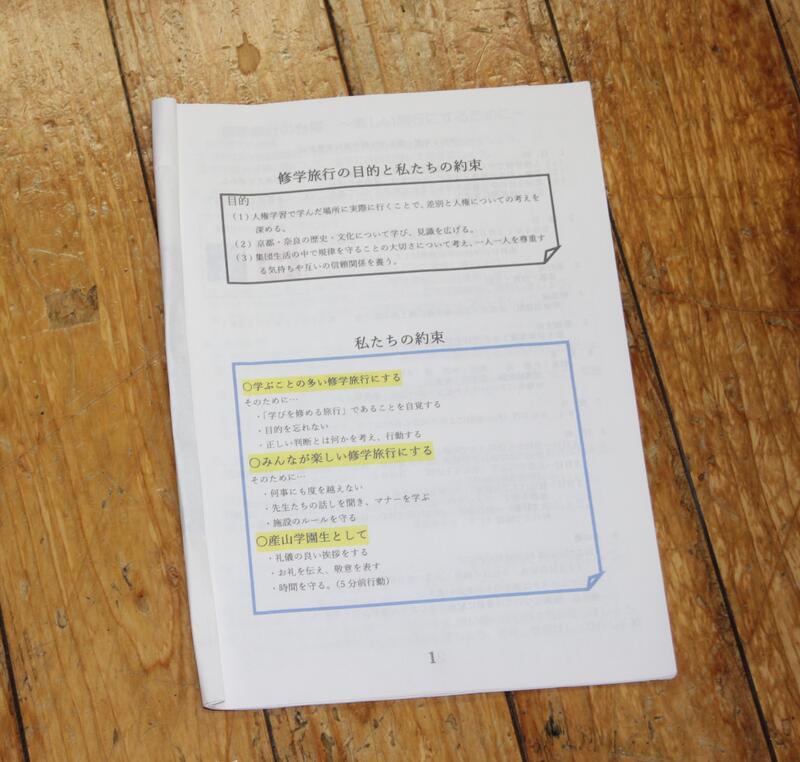 修学旅行の目的と私たちの約束
目的
（1）人権学習で学んだ場所に実際に行くことで、差別と人権についての考えを
深める。
（2）京都・奈良の歴史・文化について学び、見識を広げる。
（3）集団生活の中で規律を守ることの大切さについて考え、一人一人を尊重す
る気持ちや互いの信頼関係を養う。
私たちの約束
〇学ぶことの多い修学旅行にする
そのために…
・「学びを修める旅行」であることを自覚する
・目的を忘れない
・正しい判断とは何かを考え、行動する
〇みんなが楽しい修学旅行にする
そのために…
・何事にも度を越えない
・先生たちの話しを聞き、マナーを学ぶ
・施設のルールを守る
〇産山学園生として
・礼儀の良い挨拶をする
・お礼を伝え、敬意を表す
・時間を守る。（5分前行動）
1